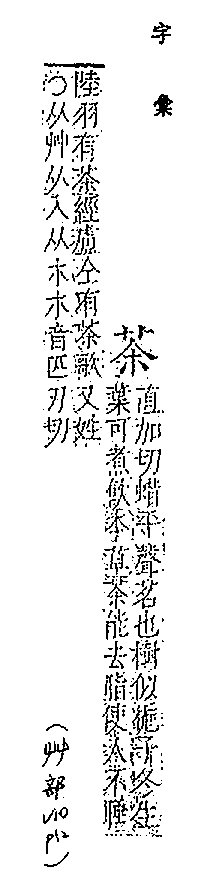 字彙
茶
直加切蜡平聲名也樹似梔子冬生
葉可煮飲爲茶能去脂使人不睡
陸羽有茶經盧仝有茶歌又姓
〇从艸从入从木木音匹刃切
(艸部 V10 P12)